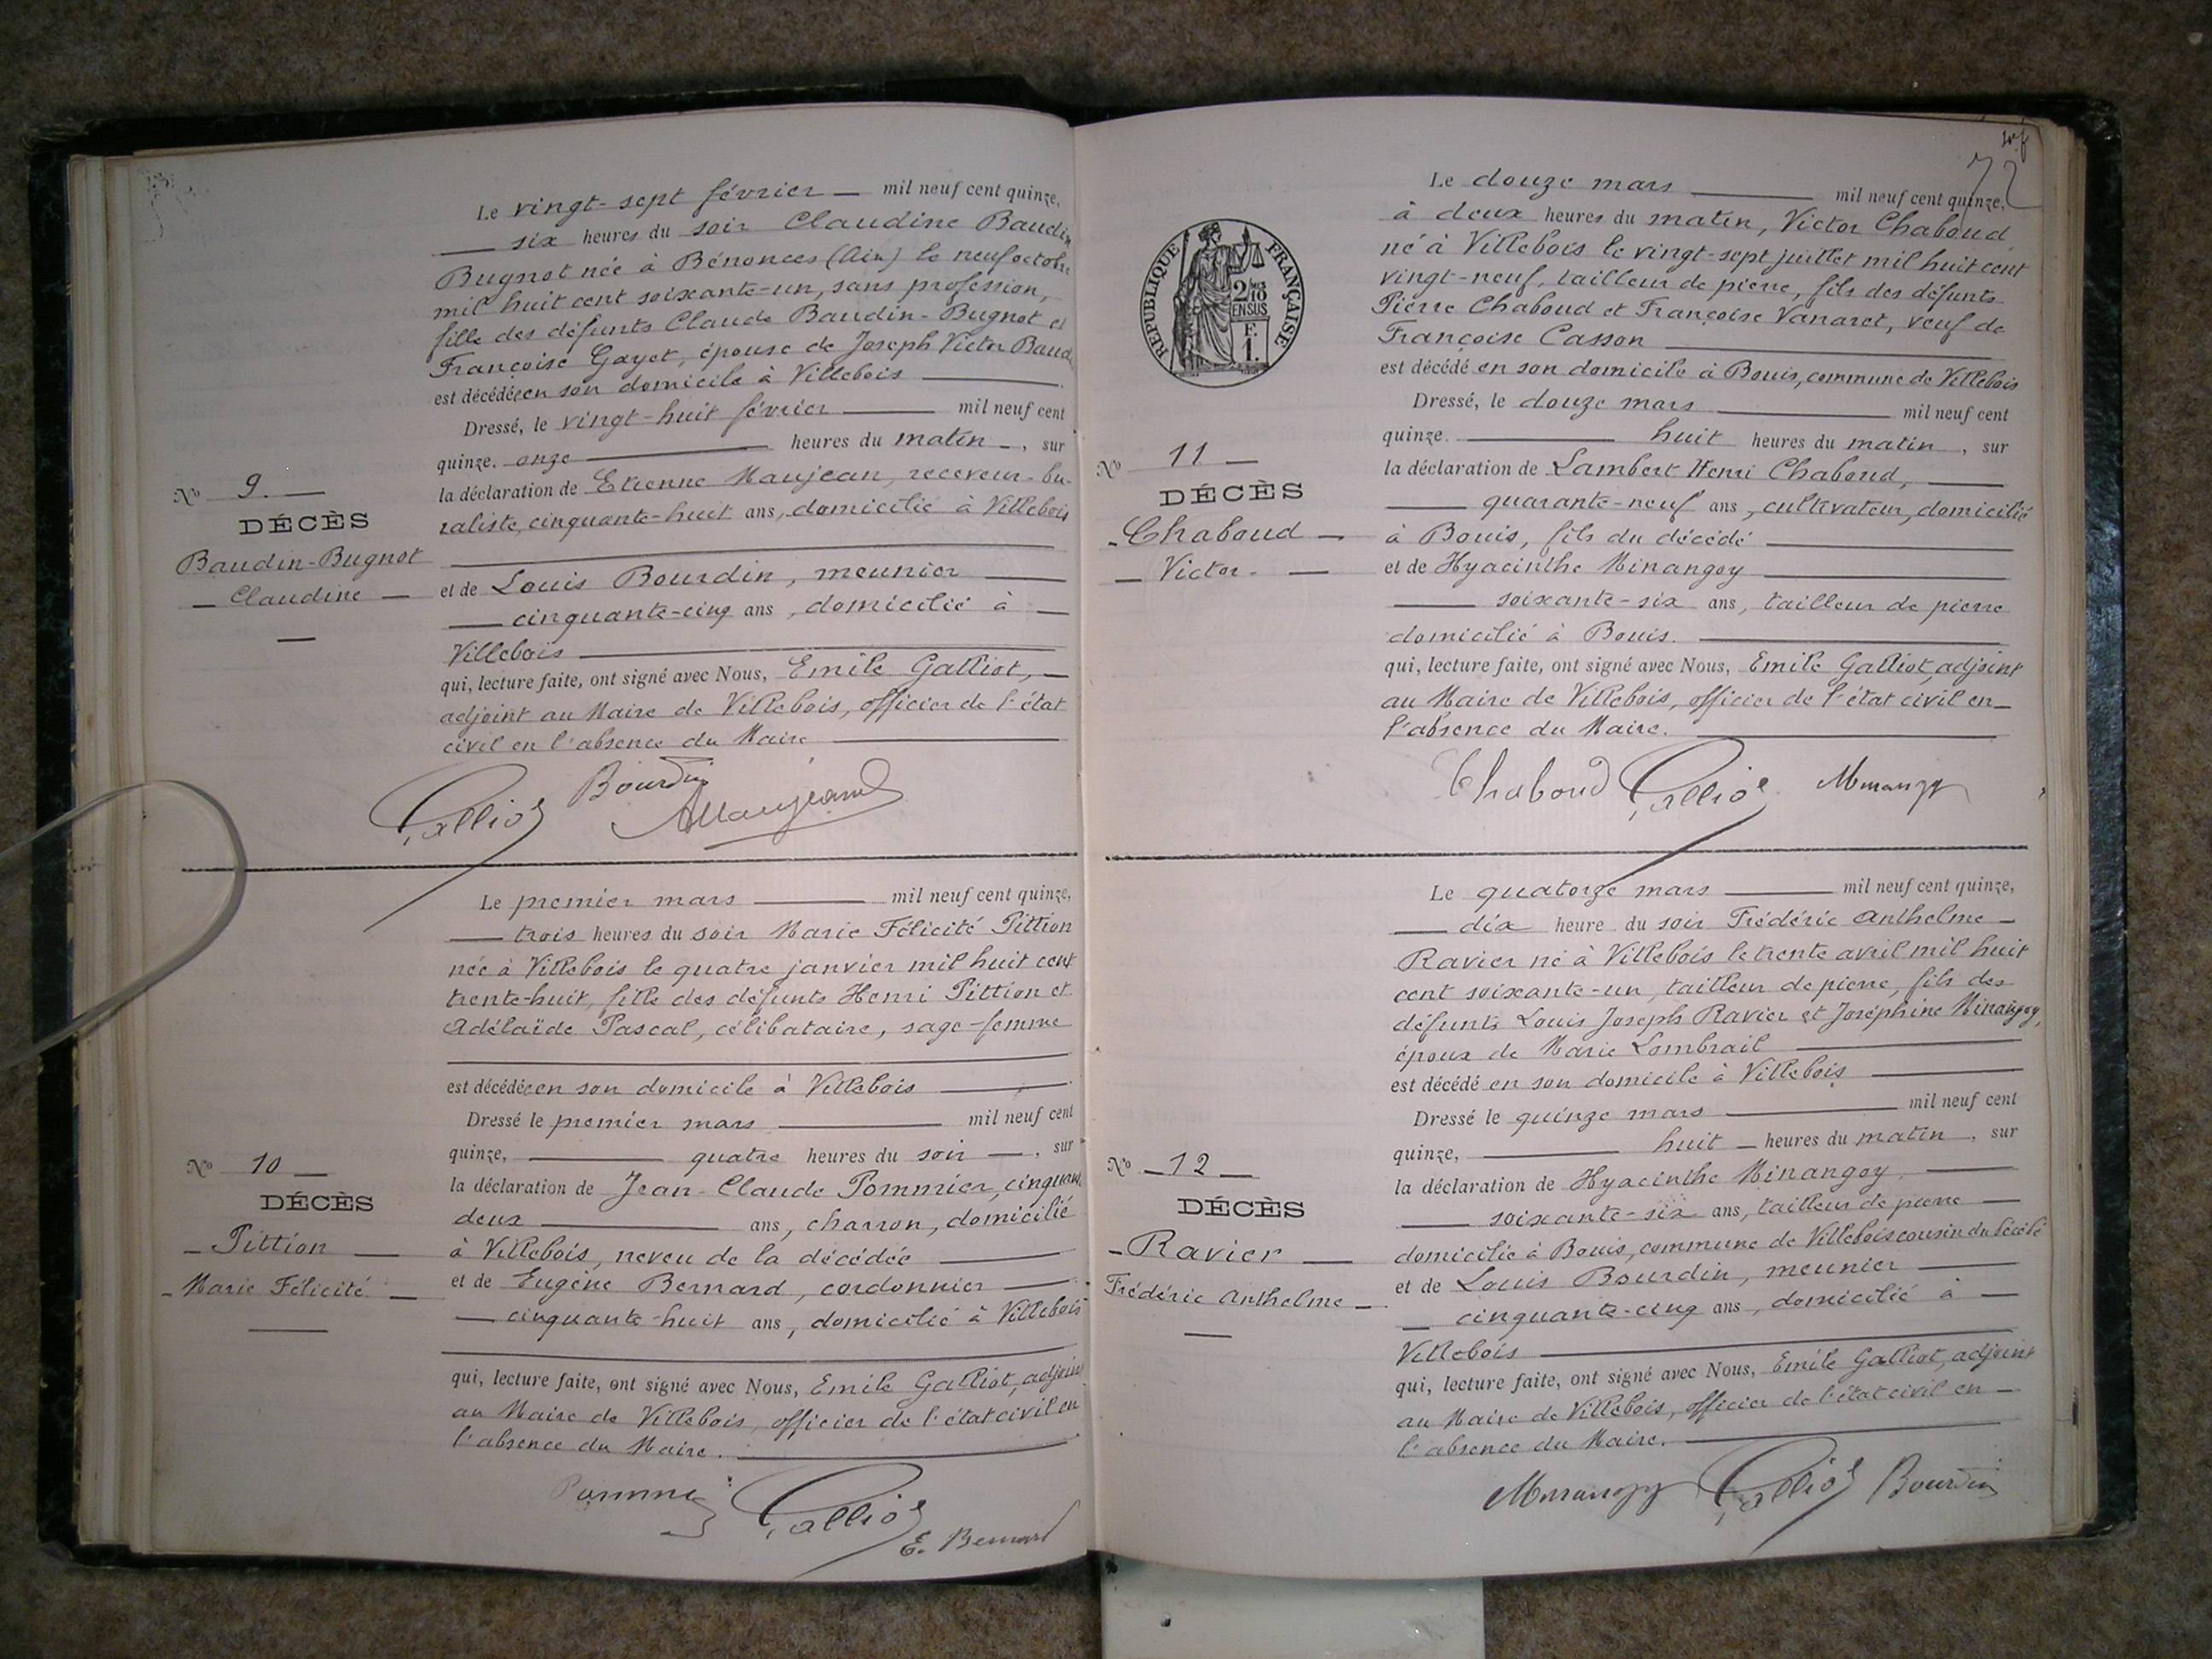 Le vingt-sept février — mil neuf cent quinze,
— six heures du soir Claudine Baudin
Bugnot née à Bénonces (Ain) le neuf octobre
mil huit cent soixante-un, sans profession,
fille des défunts Claude Baudin-Bugnot et
Françoise Gayet, épouse de Joseph Victor Baud
est décédée en son domicile à Villebois —
Dressé, le vingt-huit février — mil neuf cent
quinze. onze — heures du matin —, sur
la déclaration de Etienne Maujean, receveur-bu-
raliste, cinquante-huit ans, domicilié à Villebois
et de Louis Bourdin, meunier —
— cinquante-cinq ans, domicilié à —
Villebois —
qui, lecture faite, ont signé avec Nous, Emile Galliot, —
adjoint au Maire de Villebois, officier de l'état
civil en l'absence du Maire —
No 9. —
DÉCÈS
Baudin-Bugnot
— Claudine —
Galliot Bourdin
AMaujean
Le premier mars — mil neuf cent quinze,
— trois heures du soir Marie Félicité Pittion
née à Villebois le quatre janvier mil huit cent
trente-huit, fille des défunts Henri Pittion et
Adélaïde Pascal, célibataire, sage-femme
est décédée en son domicile à Villebois —
Dressé le premier mars — mil neuf cent
quinze, — quatre heures du soir —, sur
la déclaration de Jean-Claude Pommier, cinquante
deux — ans, charron, domicilié
à Villebois, neveu de la décédée —
et de Eugène Bernard, cordonnier —
— cinquante-huit ans, domicilié à Villebois
qui, lecture faite, ont signé avec Nous, Emile Galliot, adjoint
au Maire de Villebois, officier de l'état civil en
l'absence du Maire. —
No 10 —
DÉCÈS
— Pittion —
— Marie Félicité —
Pommier Galliot
E. Bernard
72
RÉPUBLIQUE FRANÇAISE
2/10
EN SUS
F.
1.
Le douze mars — mil neuf cent quinze,
à deux heures du matin, Victor Chaboud
né à Villebois le vingt-sept juillet mil huit cent
vingt-neuf, tailleur de pierre, fils des défunts
Pierre Chaboud et Françoise Vanaret, veuf de
Françoise Casson —
est décédé en son domicile à Bouis, commune de Villebois
Dressé, le douze mars — mil neuf cent
quinze. — huit heures du matin, sur
la déclaration de Lambert Henri Chaboud, —
— quarante-neuf ans, cultivateur, domicilié
à Bouis, fils du décédé —
et de Hyacinthe Minangoy —
— soixante-six ans, tailleur de pierre
domicilié à Bouis. —
qui, lecture faite, ont signé avec Nous, Emile Galliot, adjoint
au Maire de Villebois, officier de l'état civil en —
l'absence du Maire. —
No 11 —
DÉCÈS
- Chaboud —
— Victor. —
Chaboud Galliot Minangoy
Le quatorze mars — mil neuf cent quinze,
— dix heure du soir Frédéric Anthelme —
Ravier né à Villebois le trente avril mil huit
cent soixante-un, tailleur de pierre, fils des
défunts Louis Joseph Ravier et Joséphine Minangoy,
époux de Marie Lombrail —
est décédé en son domicile à Villebois —
Dressé le quinze mars — mil neuf cent
quinze, — huit — heures du matin, sur
la déclaration de Hyacinthe Minangoy, —
— soixante-six ans, tailleur de pierre —
domicilié à Bouis, commune de Villebois cousin du décédé
et de Louis Bourdin, meunier —
— cinquante-cinq ans, domicilié à —
Villebois —
qui, lecture faite, ont signé avec Nous, Emile Galliot, adjoint
au Maire de Villebois, officier de l'état civil en —
l'absence du Maire. —
No — 12 —
DÉCÈS
- Ravier —
Frédéric Anthelme —
Minangoy Galliot Bourdin